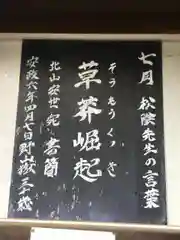 七月 松陰先生の言葉
草莽崛起
そうもうくっき
北山安世宛書簡
安政六年四月七日野山獄三十歳